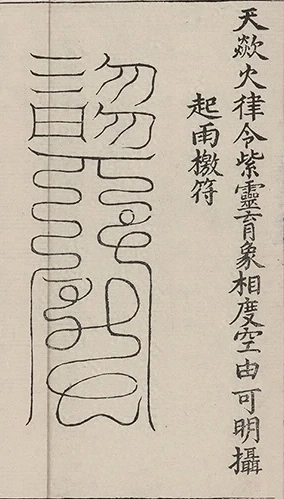 天歘火律令紫靈育象相度空由可明攝
起雨檄符